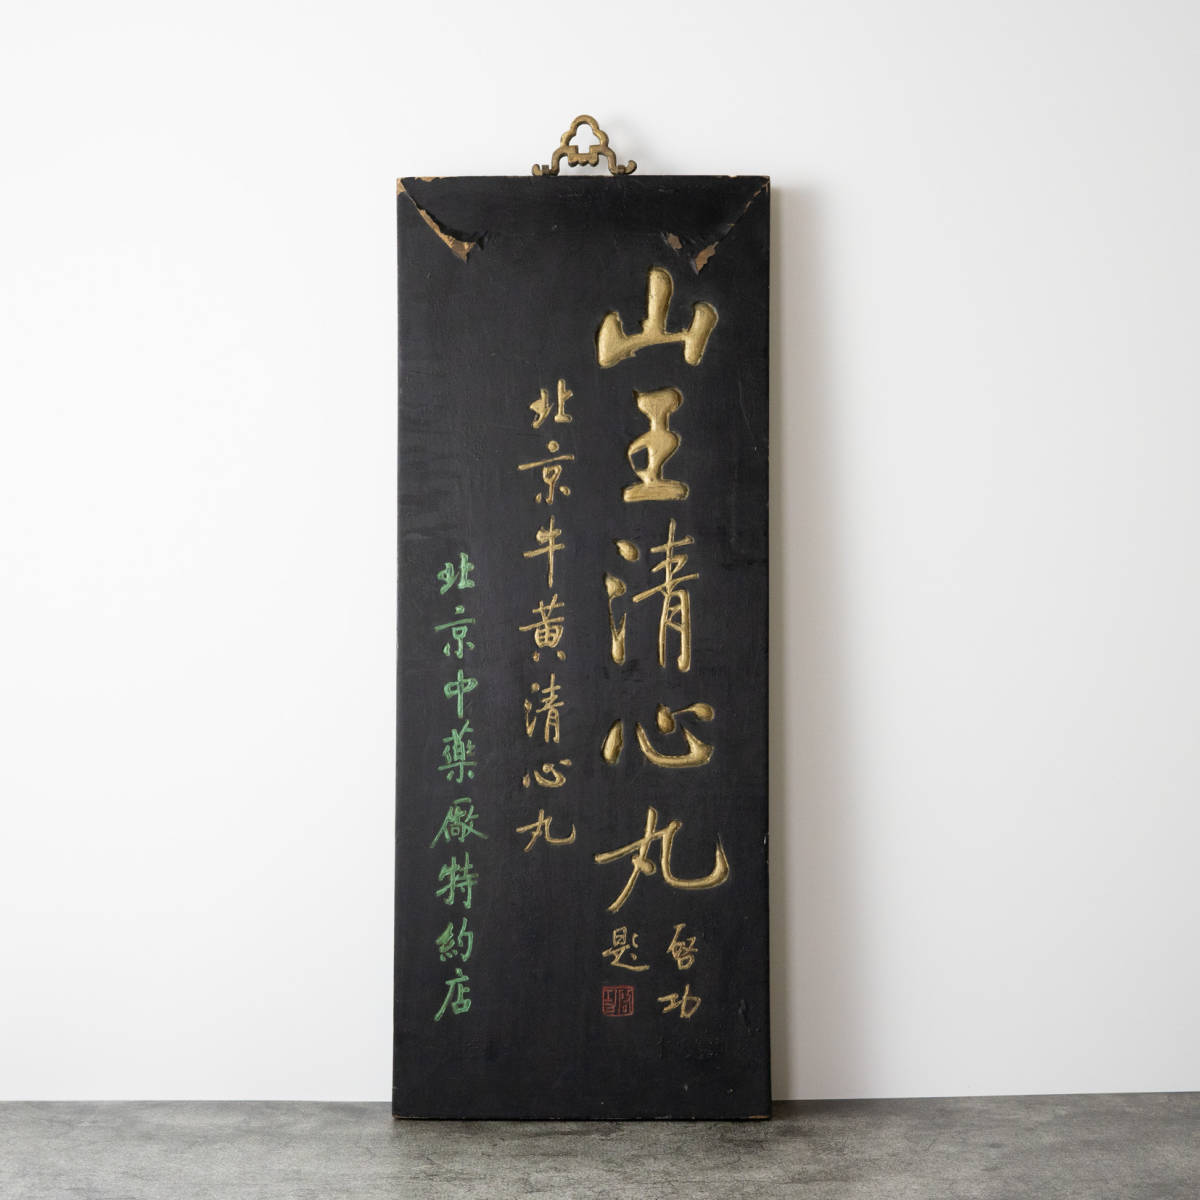 山王清心丸
啓功
題
北京牛黄清心丸
北京中薬廠特約店